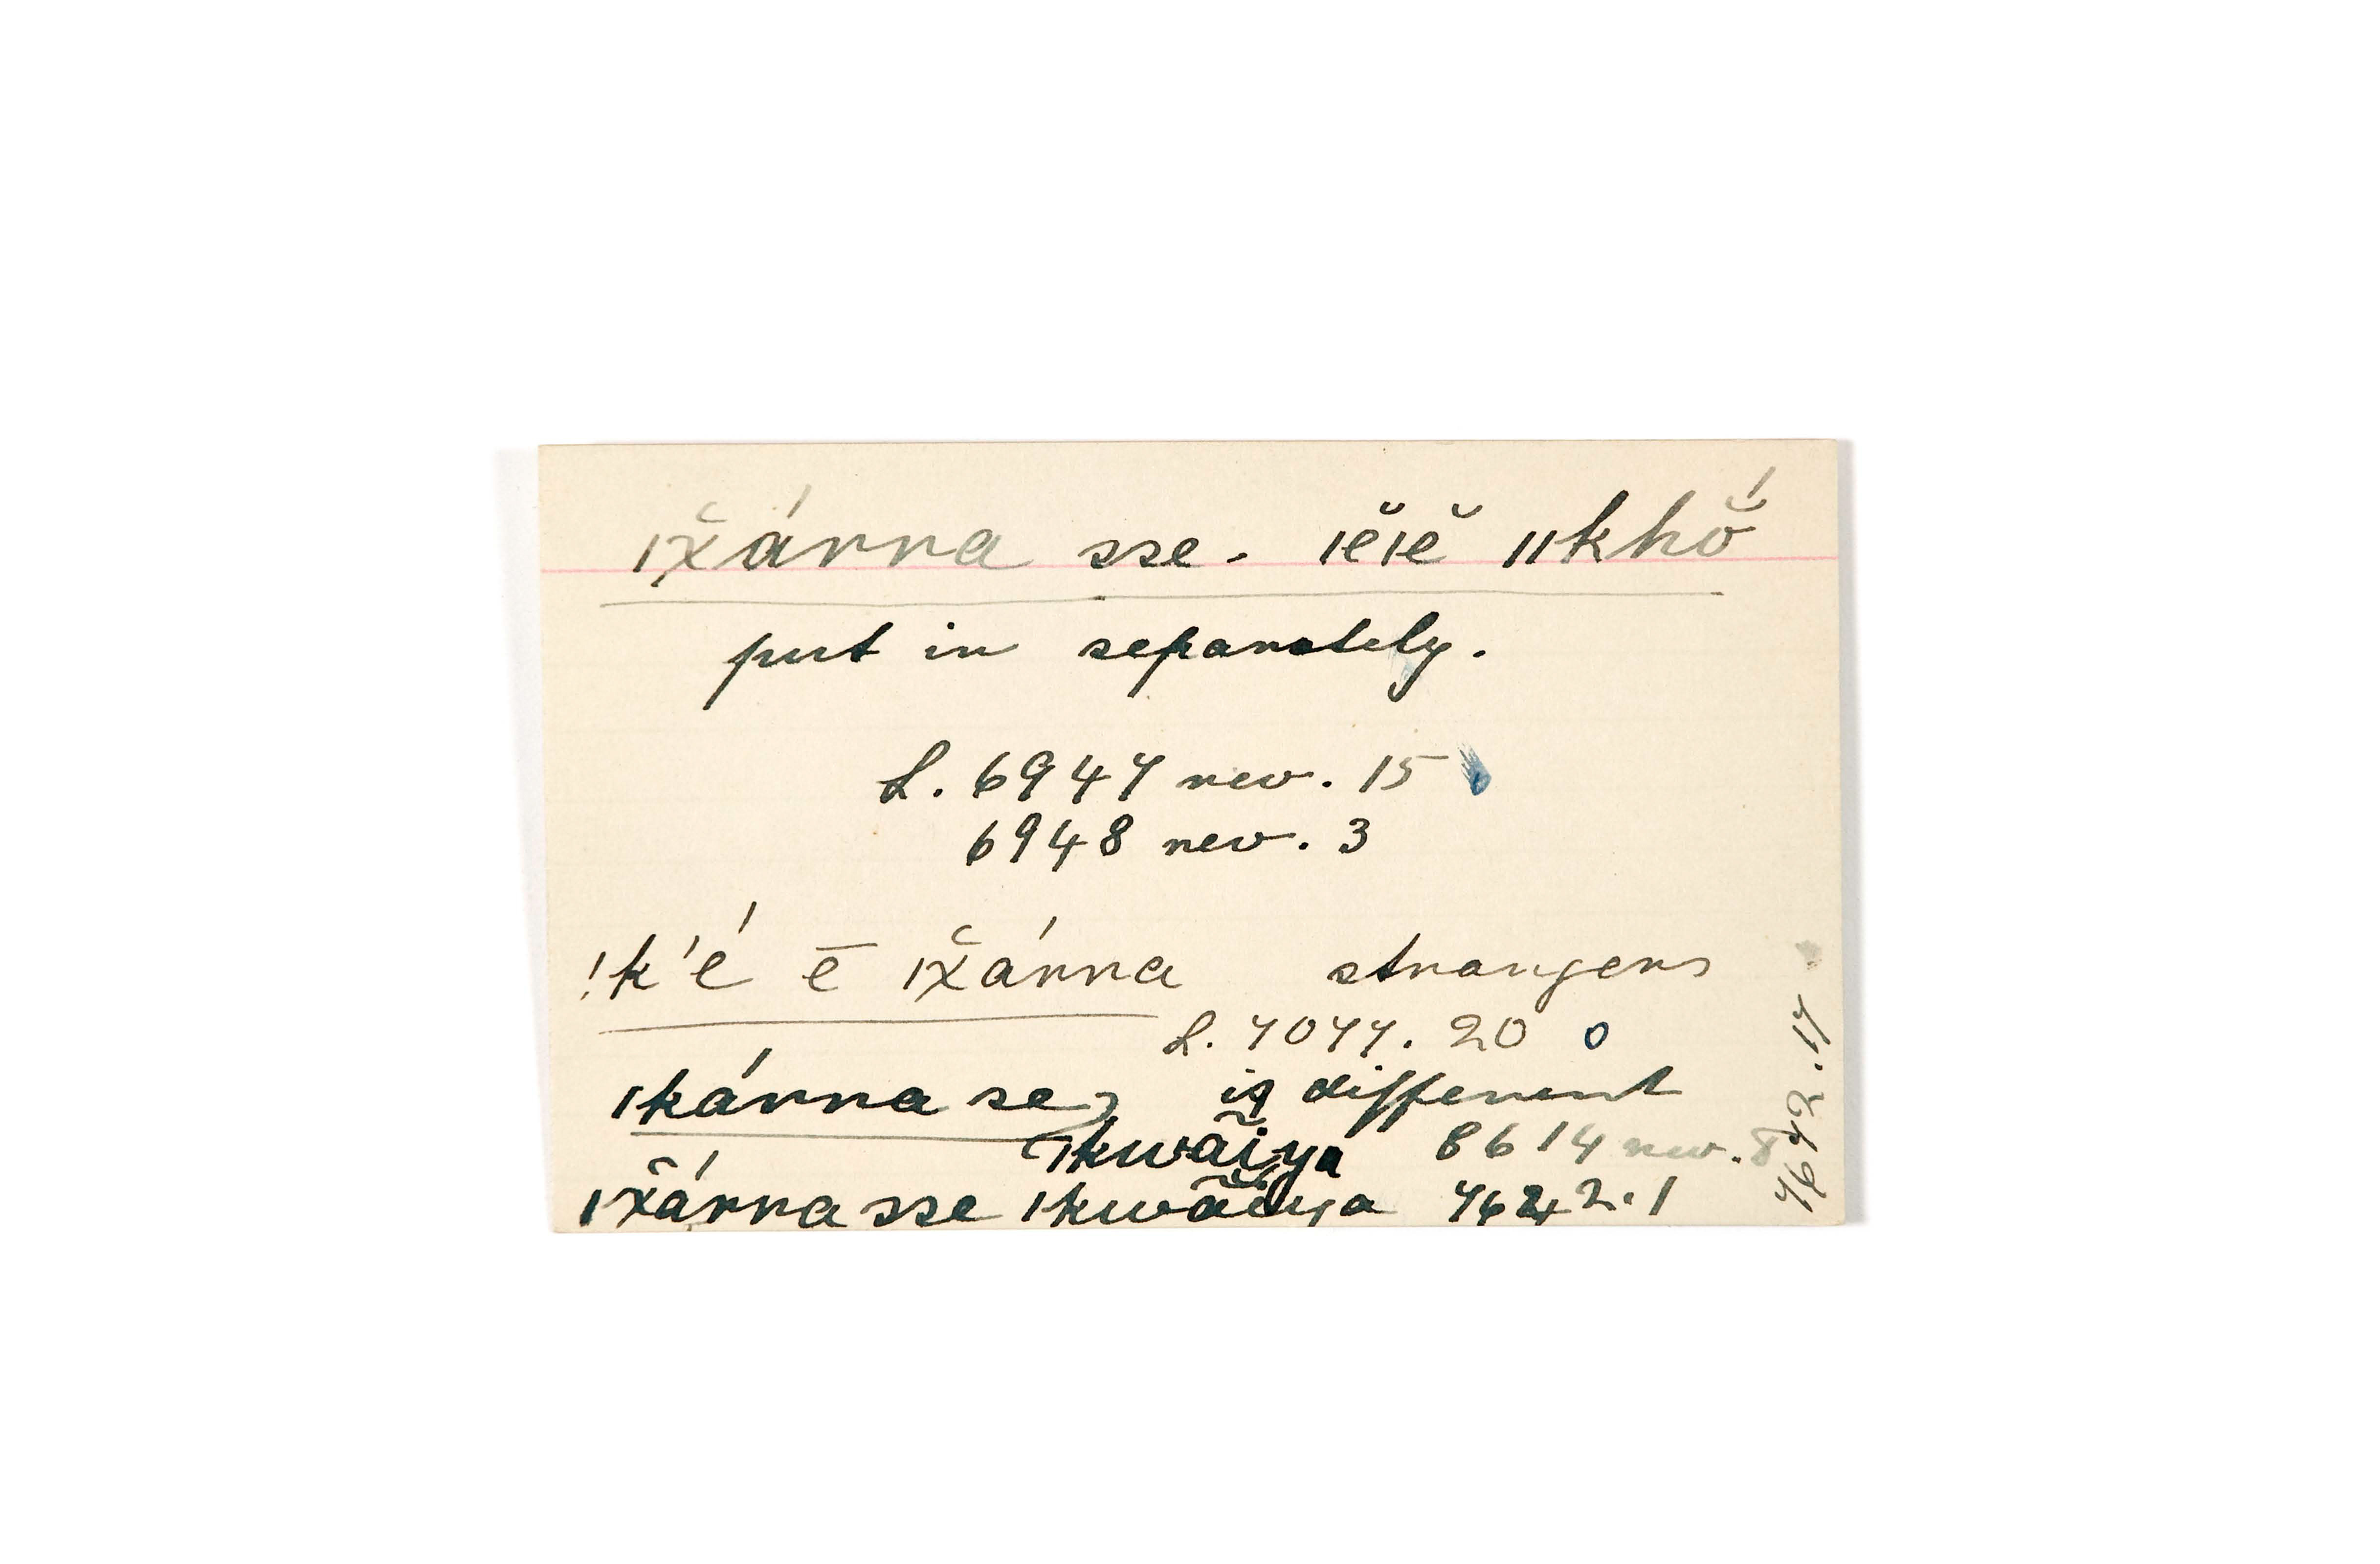 ǀx̆árra sse- ǀĕǀĕ ǁkhŏ́
put in separately.
L. 6947 rev. 15
6948 rev. 3
!k'é ē ǀx̆árra strangers
L. 7077. 20 0
ǀkárra se, is different
ǀkwãĭya 8614 rev. 8
ǀx̆árra sse ǀkwãĭya 7642.1
7642.17